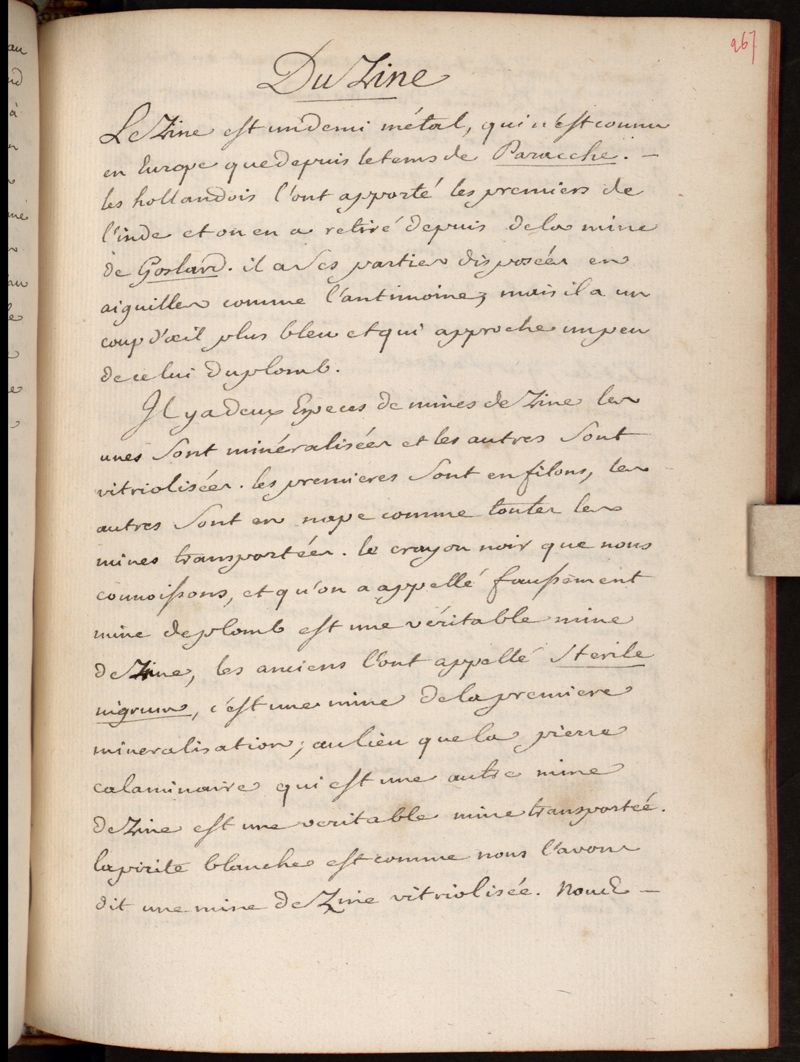 267
Du Zinc
Le Zinc est un demi métal, qui n'est connu
en Europe que depuis le tems de Paracelse. —
les hollandois l'ont apporté les premiers de
l'inde et on en a retiré depuis de la mine
de Goslard. il a ses parties disposées en
aiguilles comme l'antimoine; mais il a un
coup d'œil plus bleu et qui approche un peu
de celui du plomb.
Il y a deux Especes de mines de Zinc les
unes sont minéralisées et les autres sont
vitriolisées. les premieres sont en filons, les
autres sont en nape comme toutes les
mines transportées. le crayon noir que nous
connoissons, et qu'on a appellé faussement
mine de plomb est une véritable mine
de Zinc, les anciens l'ont appellé Sterile
nigrum, c'est une mine de la premiere
mineralisation; au lieu que la pierre
calaminaire qui est une autre mine
de Zinc est une veritable mine transportée.
la pirite blanche est comme nous l'avons
dit une mine de Zinc vitriolisée. Nous —